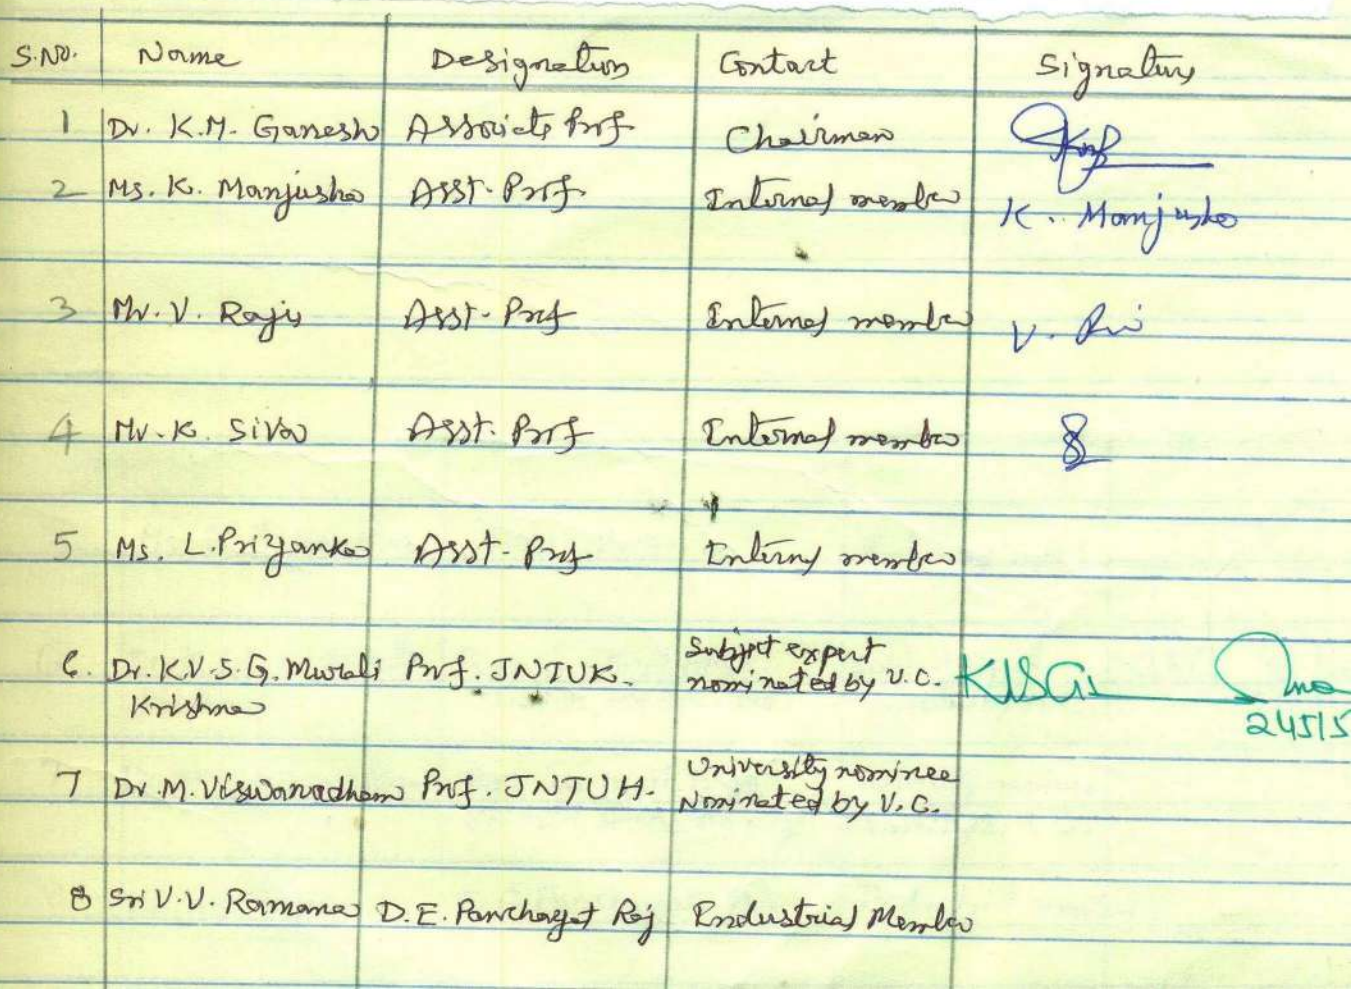 S.No. Name Designation Contact Signature
1 Dr. K.M. Ganesh Associate Prof Chairman
2 Ms. K. Manjusha Asst. Prof Internal member K. Manjusha
3 Mr. V. Raju Asst. Prof Internal member V.
4 Mr. K. Siva Asst. Prof Internal member
5 Ms. L. Priyanka Asst. Prof Internal member
6. Dr. K.V.S.G. Murali Prof. JNTUK. Subject expert
Krishna nominated by V.C.
7 Dr. M. Viswanadham Prof. JNTUH. University nominee
Nominated by V.C.
8 Sri V.V. Ramana D.E. Panchayat Raj Industrial Member